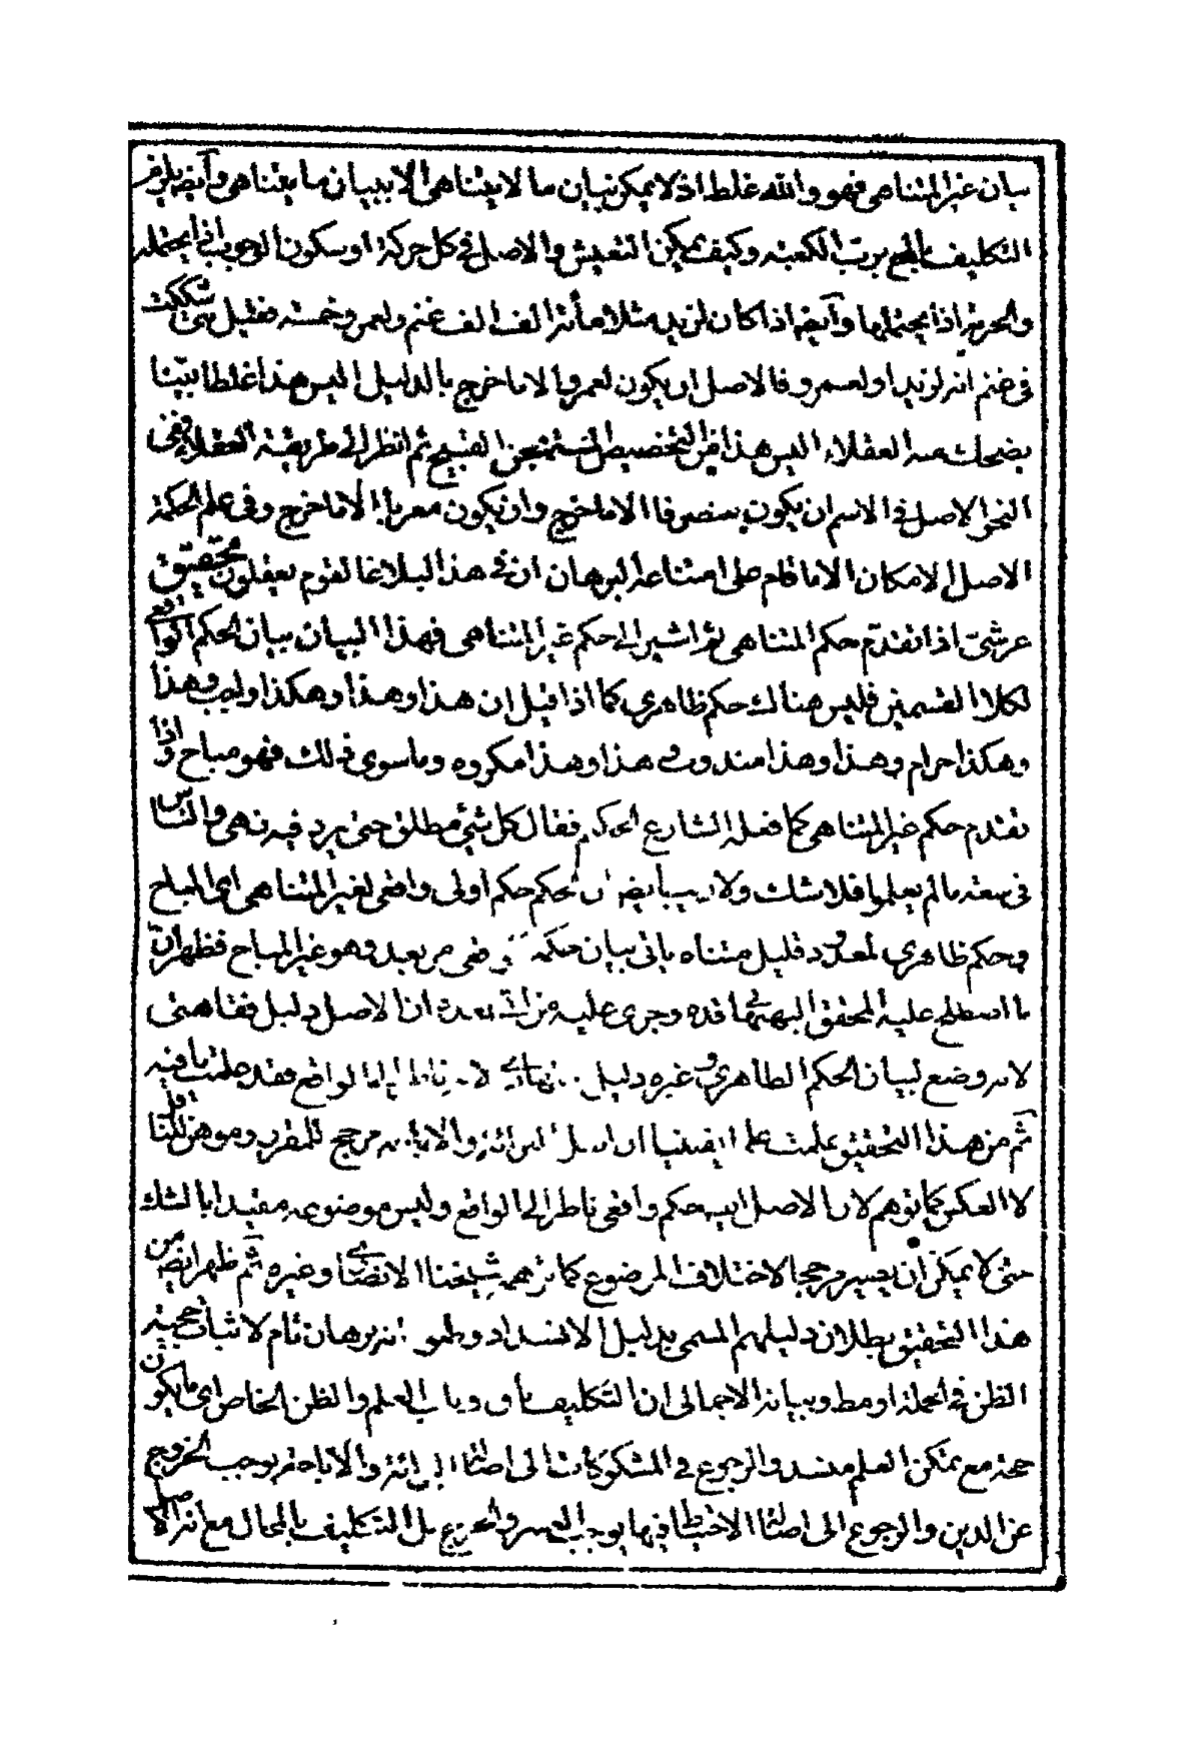 بيان غير المتناهى فهو والله غلط اذ لا يمكن بيان ما لا يتناهى الا ببيان ما يتناهى وآيضه يلزم
التكليف بالمحل برب الكعبة وكيف يمكن التعيش والاصل فى كل حركة او سكون الوجوب اذا يحتمله
والحرمة اذا يحتملها وآيضه اذا كان لزيد مثلا مأة الف الف غنم ولعمر وخمسة فقيل متى شككت
فى غنم انه لزيد او لعمرو فالاصل ان يكون لعمرو الا ما خرج بالدليل اليس هذا غلطا بيّنا
يضحك منه العقلاء اليس هذا من التخصيص المستهجن القبيح ثم انظر الى طريقة العقلاء ففى
النحو الاصل فى الاسم ان يكون منصرفا الا ما خرج وان يكون معربا الا ما خرج وفى علم الحكمة
الاصل الامكان الا ما قام على امتناعه البرهان ان فى هذا لبلاغا لقوم يعقلون تحقيق
عرشى اذا تقدم حكم المتناهى ثم اشير الى حكم غير المتناهى فهذا البيان بيان الحكم الواقعى
لكلا القسمين فليس هناك حكم ظاهرى كما اذا قيل ان هذا وهذا وهكذا واجب وهذا
وهكذا حرام وهذا وهذا مندوب وهذا وهذا مكروه وما سوى ذلك فهو مباح واذا
تقدم حكم غير المتناهى كما فعله الشارع الحكيم فقال كل شئ مطلق حتى يرد فيه نهى والناس
فى سعة ما لم يعلموا فلا شك ولا ريب ايضه ان الحكم حكم اولى واقعى لغير المتناهى اى المباح
وحكم ظاهرى لمعدود قليل متناه ياتى بيان حكمه من بعد وهو غير المباح فظهر ان
ما اصطلح عليه المحقق البهبهانى قده وجرى عليه من بعده ان الاصل دليل فقاهتى
لانه وضع لبيان الحكم الظاهرى وغيره دليل لانه ناظر الى الواقع فقد علمت ما فيه
ثم من هذا التحقيق علمت علما يقينيا ان اصل البرائة والاباحة مرجح للمقرر وموهن للناقل
لا العكس كما توهم لان الاصل ايضه حكم واقعى ناظر الى الواقع وليس موضوعه مقيدا بالشك
حتى لا يمكن ان يصير مرجحا لاختلاف الموضوع كما توهمه شيخنا الانصارى وغيره ثم ظهر ايضه من
هذا التحقيق بطلان دليلهم المسمى بدليل الانسداد وظنوا انه برهان تام لاثبات حجية
الظن فى الجملة او مط وبيانه الاجمالى ان التكليف باق وباب العلم والظن الخاص اى ما يكون
حجة مع تمكن العلم منسد والرجوع فى المشكوكات الى اصالة البرائة والاباحة يوجب الخروج
عن الدين والرجوع الى اصالة الاحتياط فيها يوجب العسر والحرج بل التكليف بالمحال مع انه الاصل